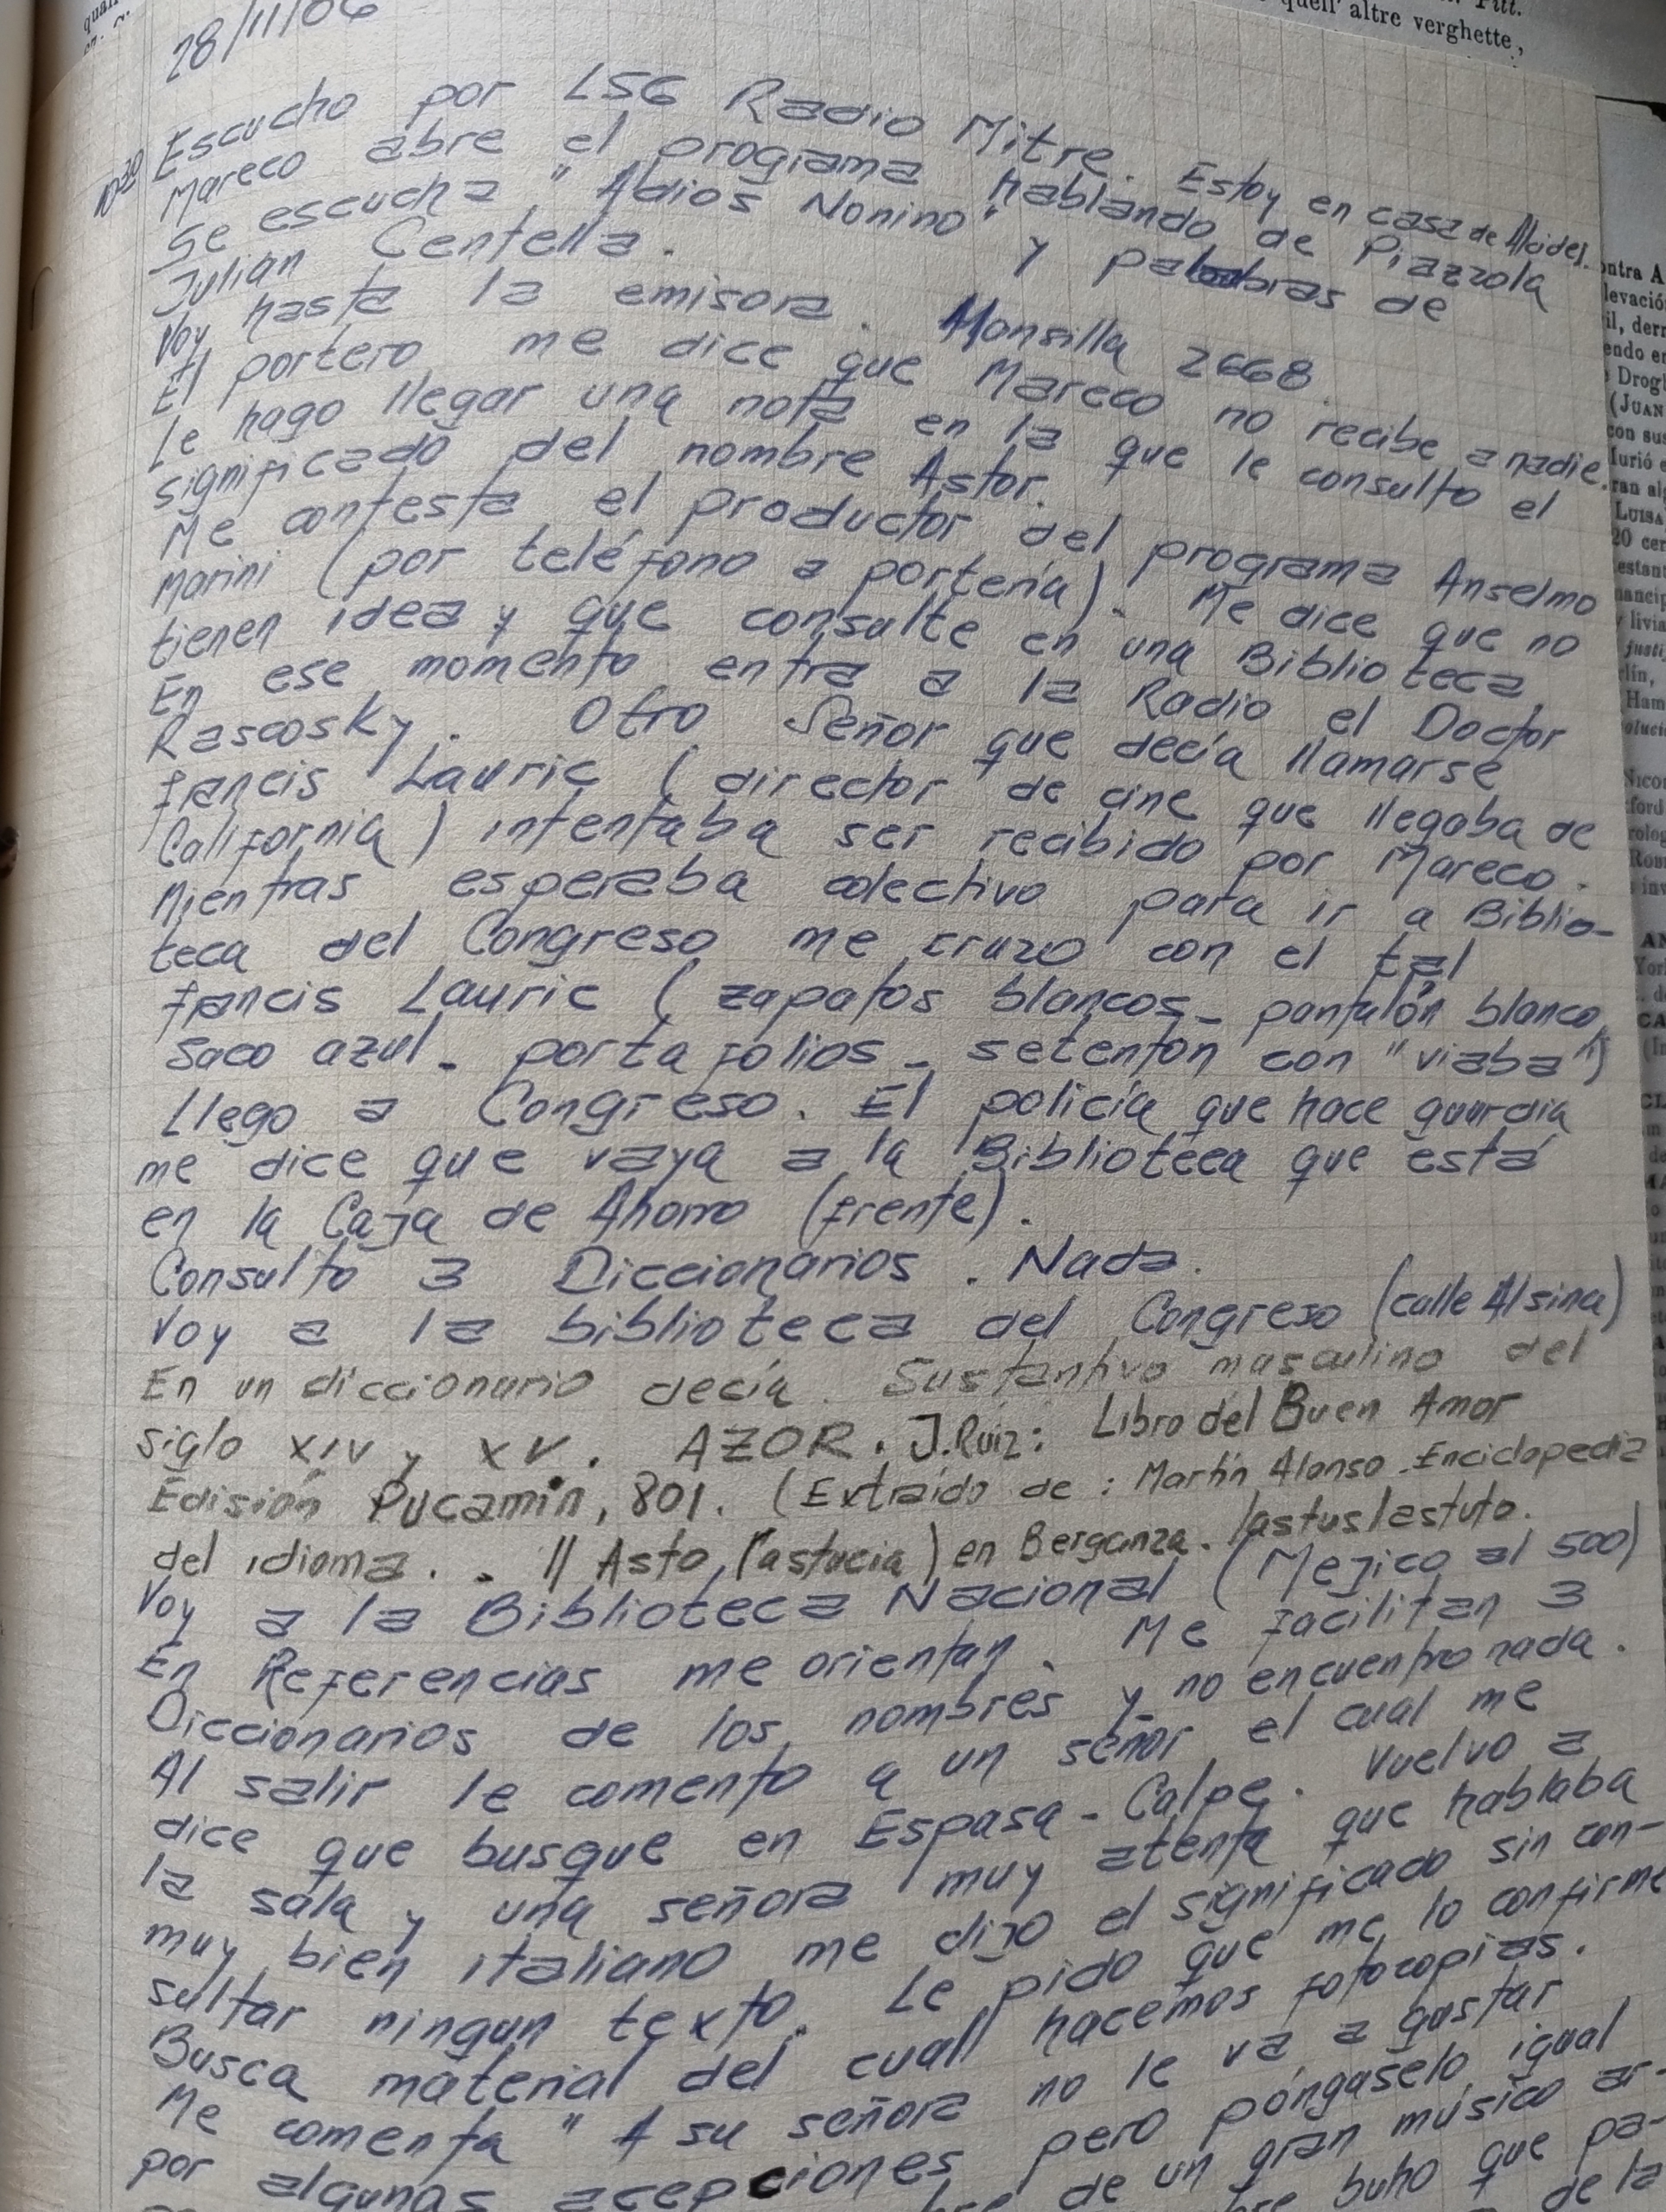 28/11/06
10:30 Escucho por LS6 Radio Mitre. Estoy en casa de Alcides.
Mareco abre el programa hablando de Piazzola
Se escucha "Adios Nonino" y palabras de
Julián Centella.
Voy hasta la emisora. Monsilla 2668.
El portero me dice que Mareco no recibe a nadie.
Le hago llegar una nota en la que le consulto el
significado del nombre Astor.
Me contesta el productor del programa Anselmo
Marini (por teléfono a portería). Me dice que no
tienen idea y que consulte en una Biblioteca.
En ese momento entra a la Radio el Doctor
Rascosky. Otro Señor que decía llamarse
Francis Lauric (director de cine que llegaba de
California) intentaba ser recibido por Mareco.
Mientras esperaba colectivo para ir a Biblio-
teca del Congreso me cruzo con el tal
Francis Lauric (zapatos blancos - pantalón blanco,
saco azul - portafolios - setentón con "viaba")
Llego a Congreso. El policía que hace guardia
me dice que vaya a la Biblioteca que está
en la Caja de Ahorro (frente).
Consulto 3 Diccionarios. Nada.
Voy a la biblioteca del Congreso (calle Alsina)
En un diccionario decía. Sustantivo masculino del
siglo XIV y XV. AZOR. J. Ruiz: Libro del Buen Amor
Edisión Pucamin, 801. (Extraído de: Martín Alonso. Enciclopedia
del idioma.. // Asto, (astucia) en Berganza. /astus/astuto.
Voy a la Biblioteca Nacional (Mejico al 500)
En Referencias me orientan. Me facilitan 3
Diccionarios de los nombres y no encuentro nada.
Al salir le comento a un señor el cual me
dice que busque en Espasa-Calpe. Vuelvo a
la sala y una señora muy atenta que hablaba
muy bien italiano me dijo el significado sin con-
sultar ningun texto. Le pido que me lo confirme
Busca material del cual hacemos fotocopias.
Me comenta "A su señora no le va a gustar
por algunas acepciones pero póngaselo igual
de un gran músico ar-
buho que pa-
de la
quell' altre verghette,